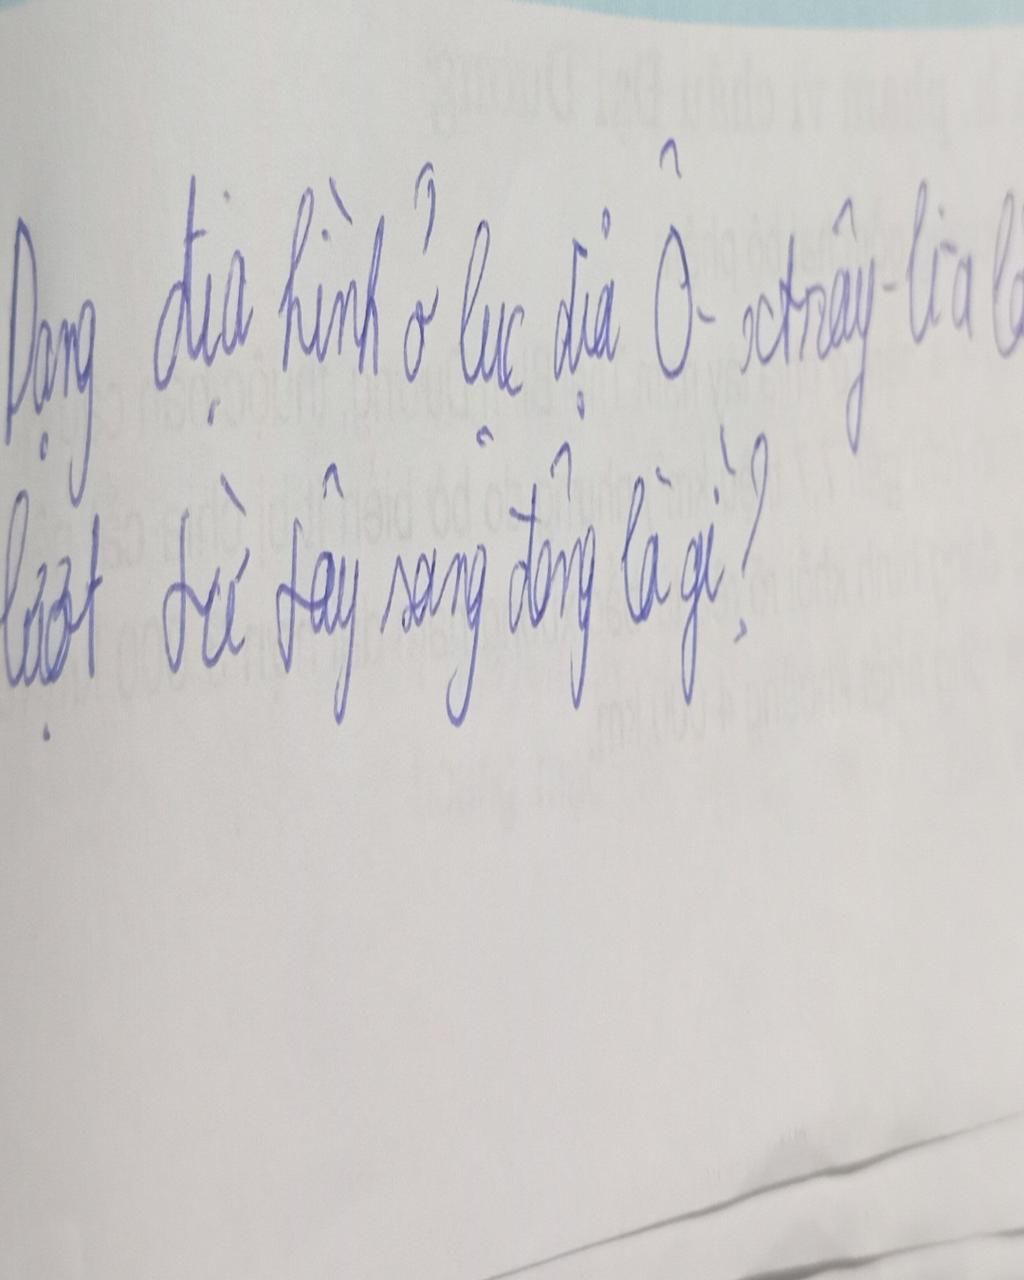 Dạng địa hình ở lục địa Ô-xtrây-lia
lượt từ tây sang đông là gì?